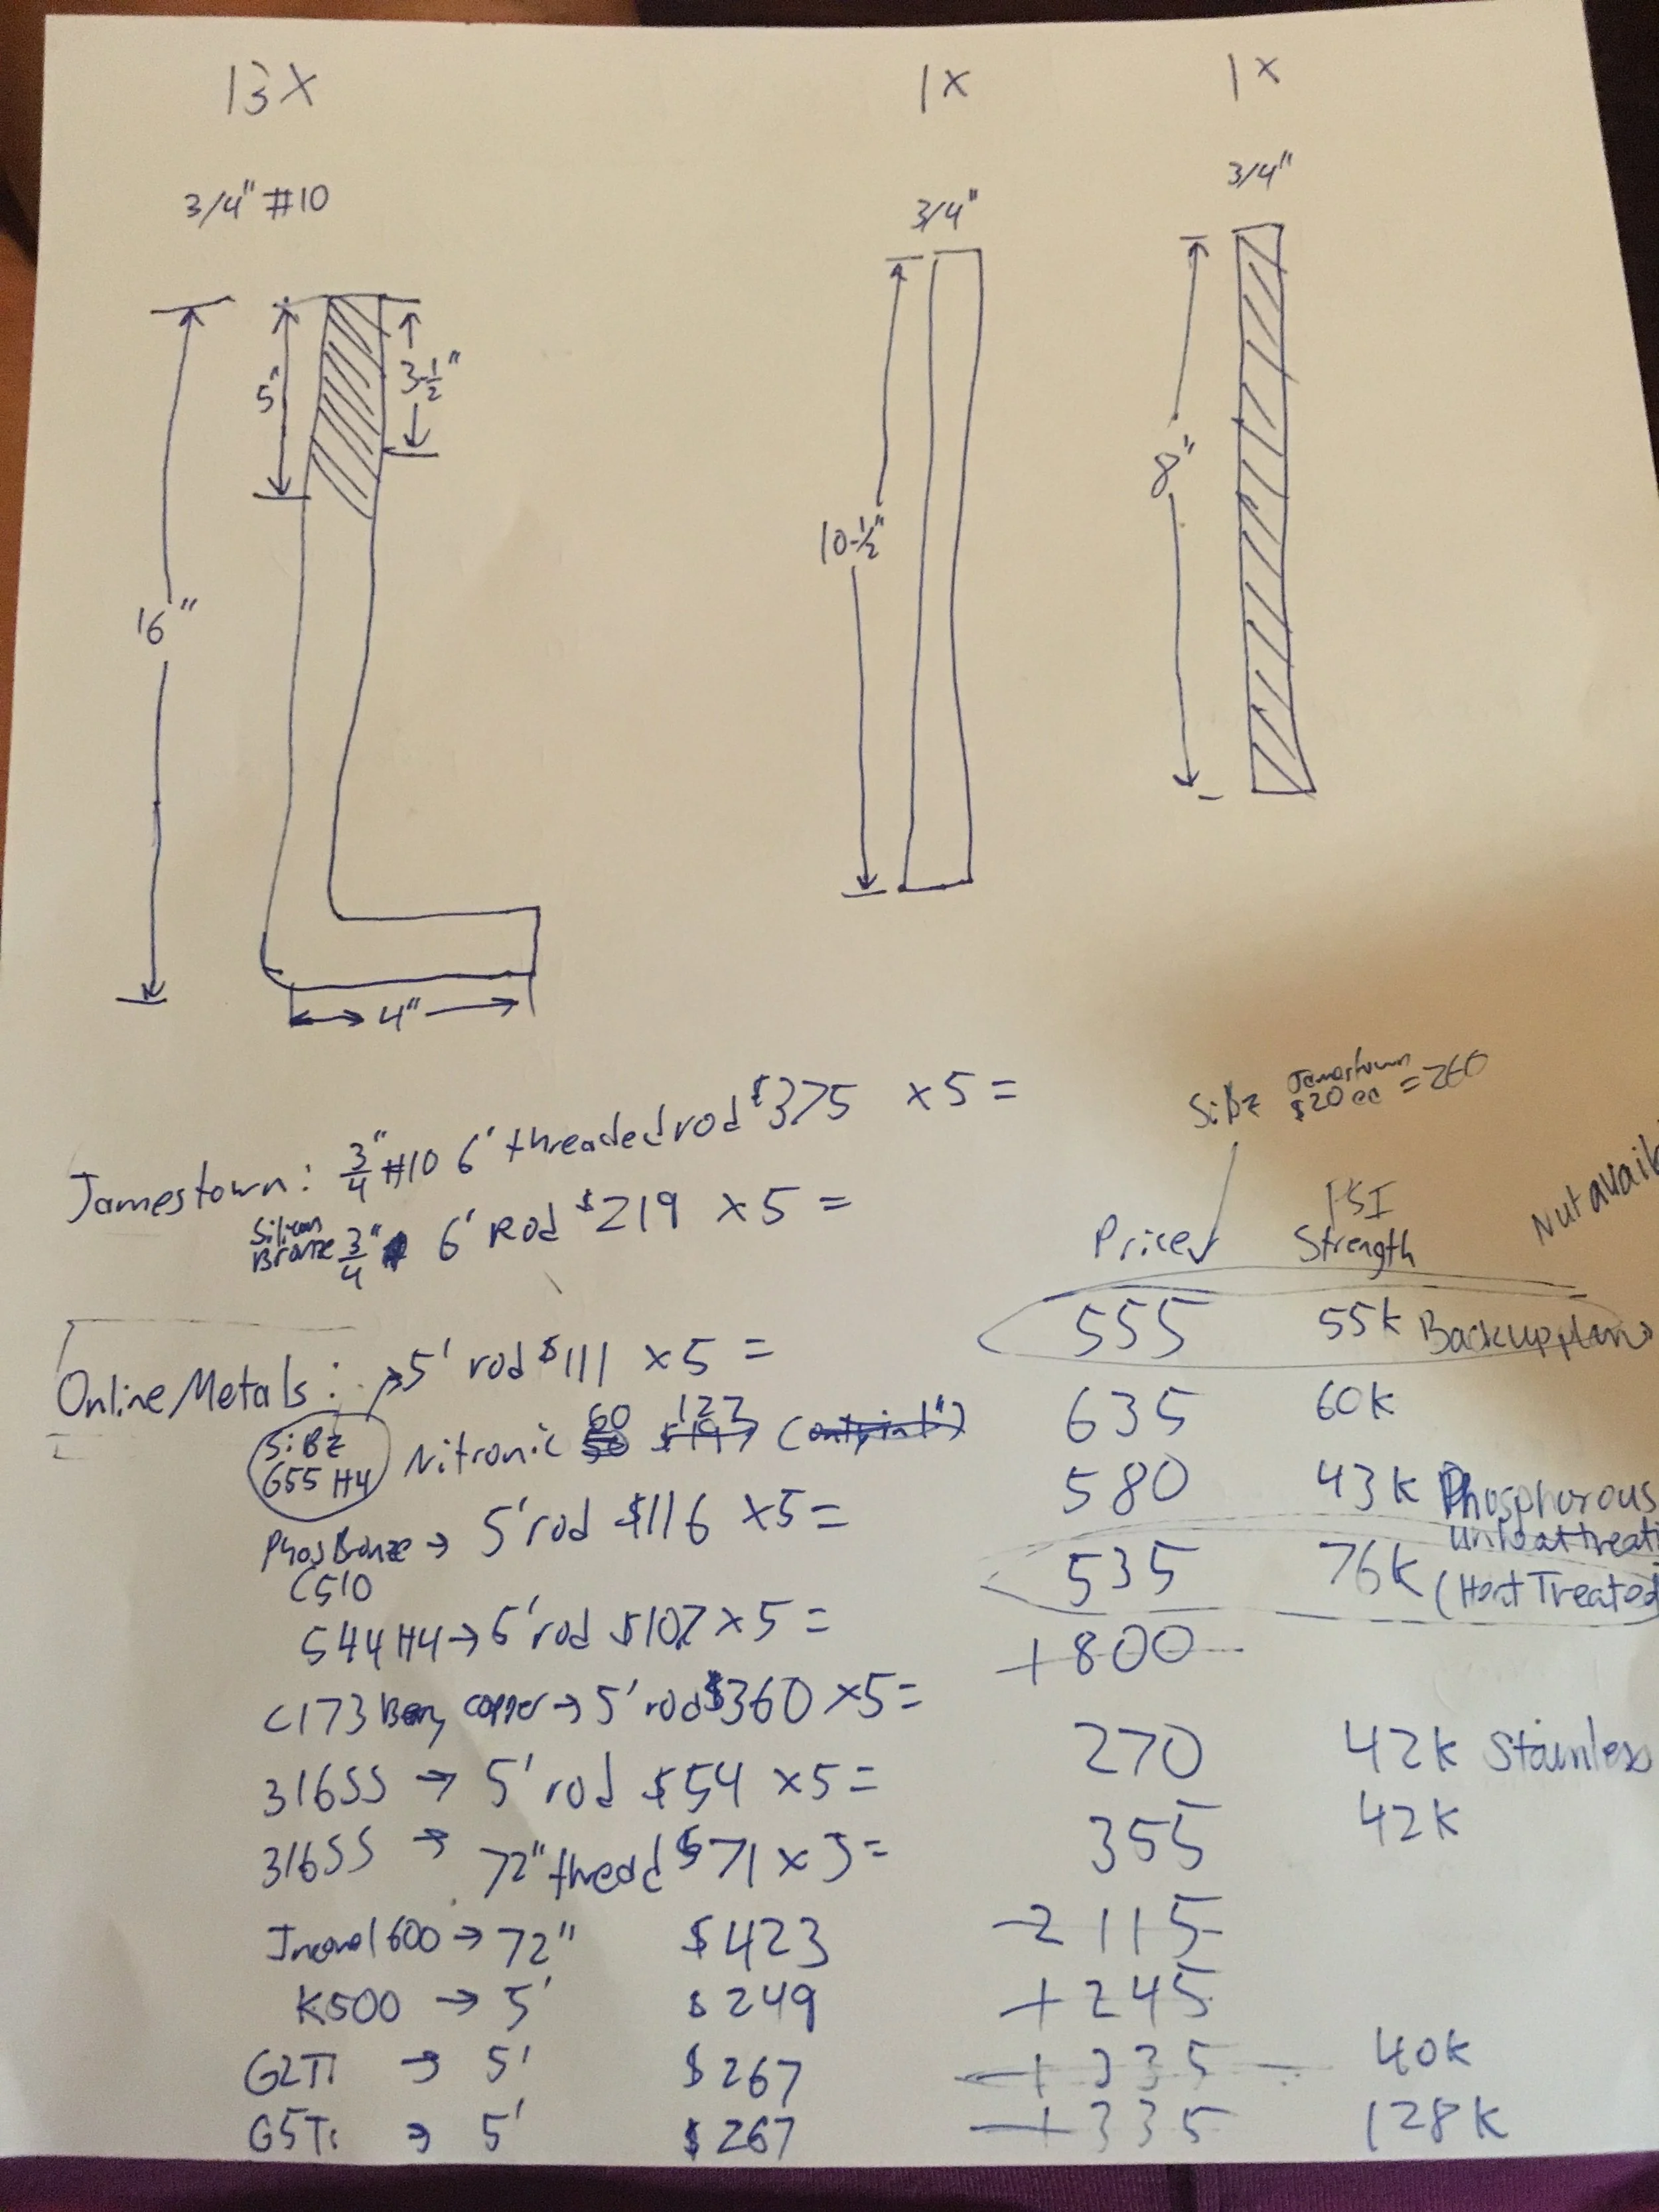 13X
1X
1X
3/4" #10
3/4"
3/4"
5"
3-1/2"
16"
10-1/2"
8"
4"
Jamestown: 3/4" #10 6' threaded rod $375 x5=
Silicon Bronze 3/4" 6' Rod $219 x5=
SiBz Jamestown $20 ea = 260
Price
PSI Strength
Nut avail
Online Metals: → 5' rod $111 x5= 555 55k Backup plan
SiBz 655 H4
Nitronic 60 127 635 60k
Phos Bronze C510 → 5' rod $116 x5= 580 43k Phosphorous unheat treat
544 H4 → 6' rod $107 x5= 535 76k (Heat Treated
C173 copper → 5' rod $360 x5= +800
316SS → 5' rod $54 x5= 270 42k Stainless
316SS → 72" thread $71 x5= 355 42k
Inconel 600 → 72" $423 2115
K500 → 5' $249 +245
G2Ti → 5' $267 +335 40k
G5Ti → 5' $267 +335 128k